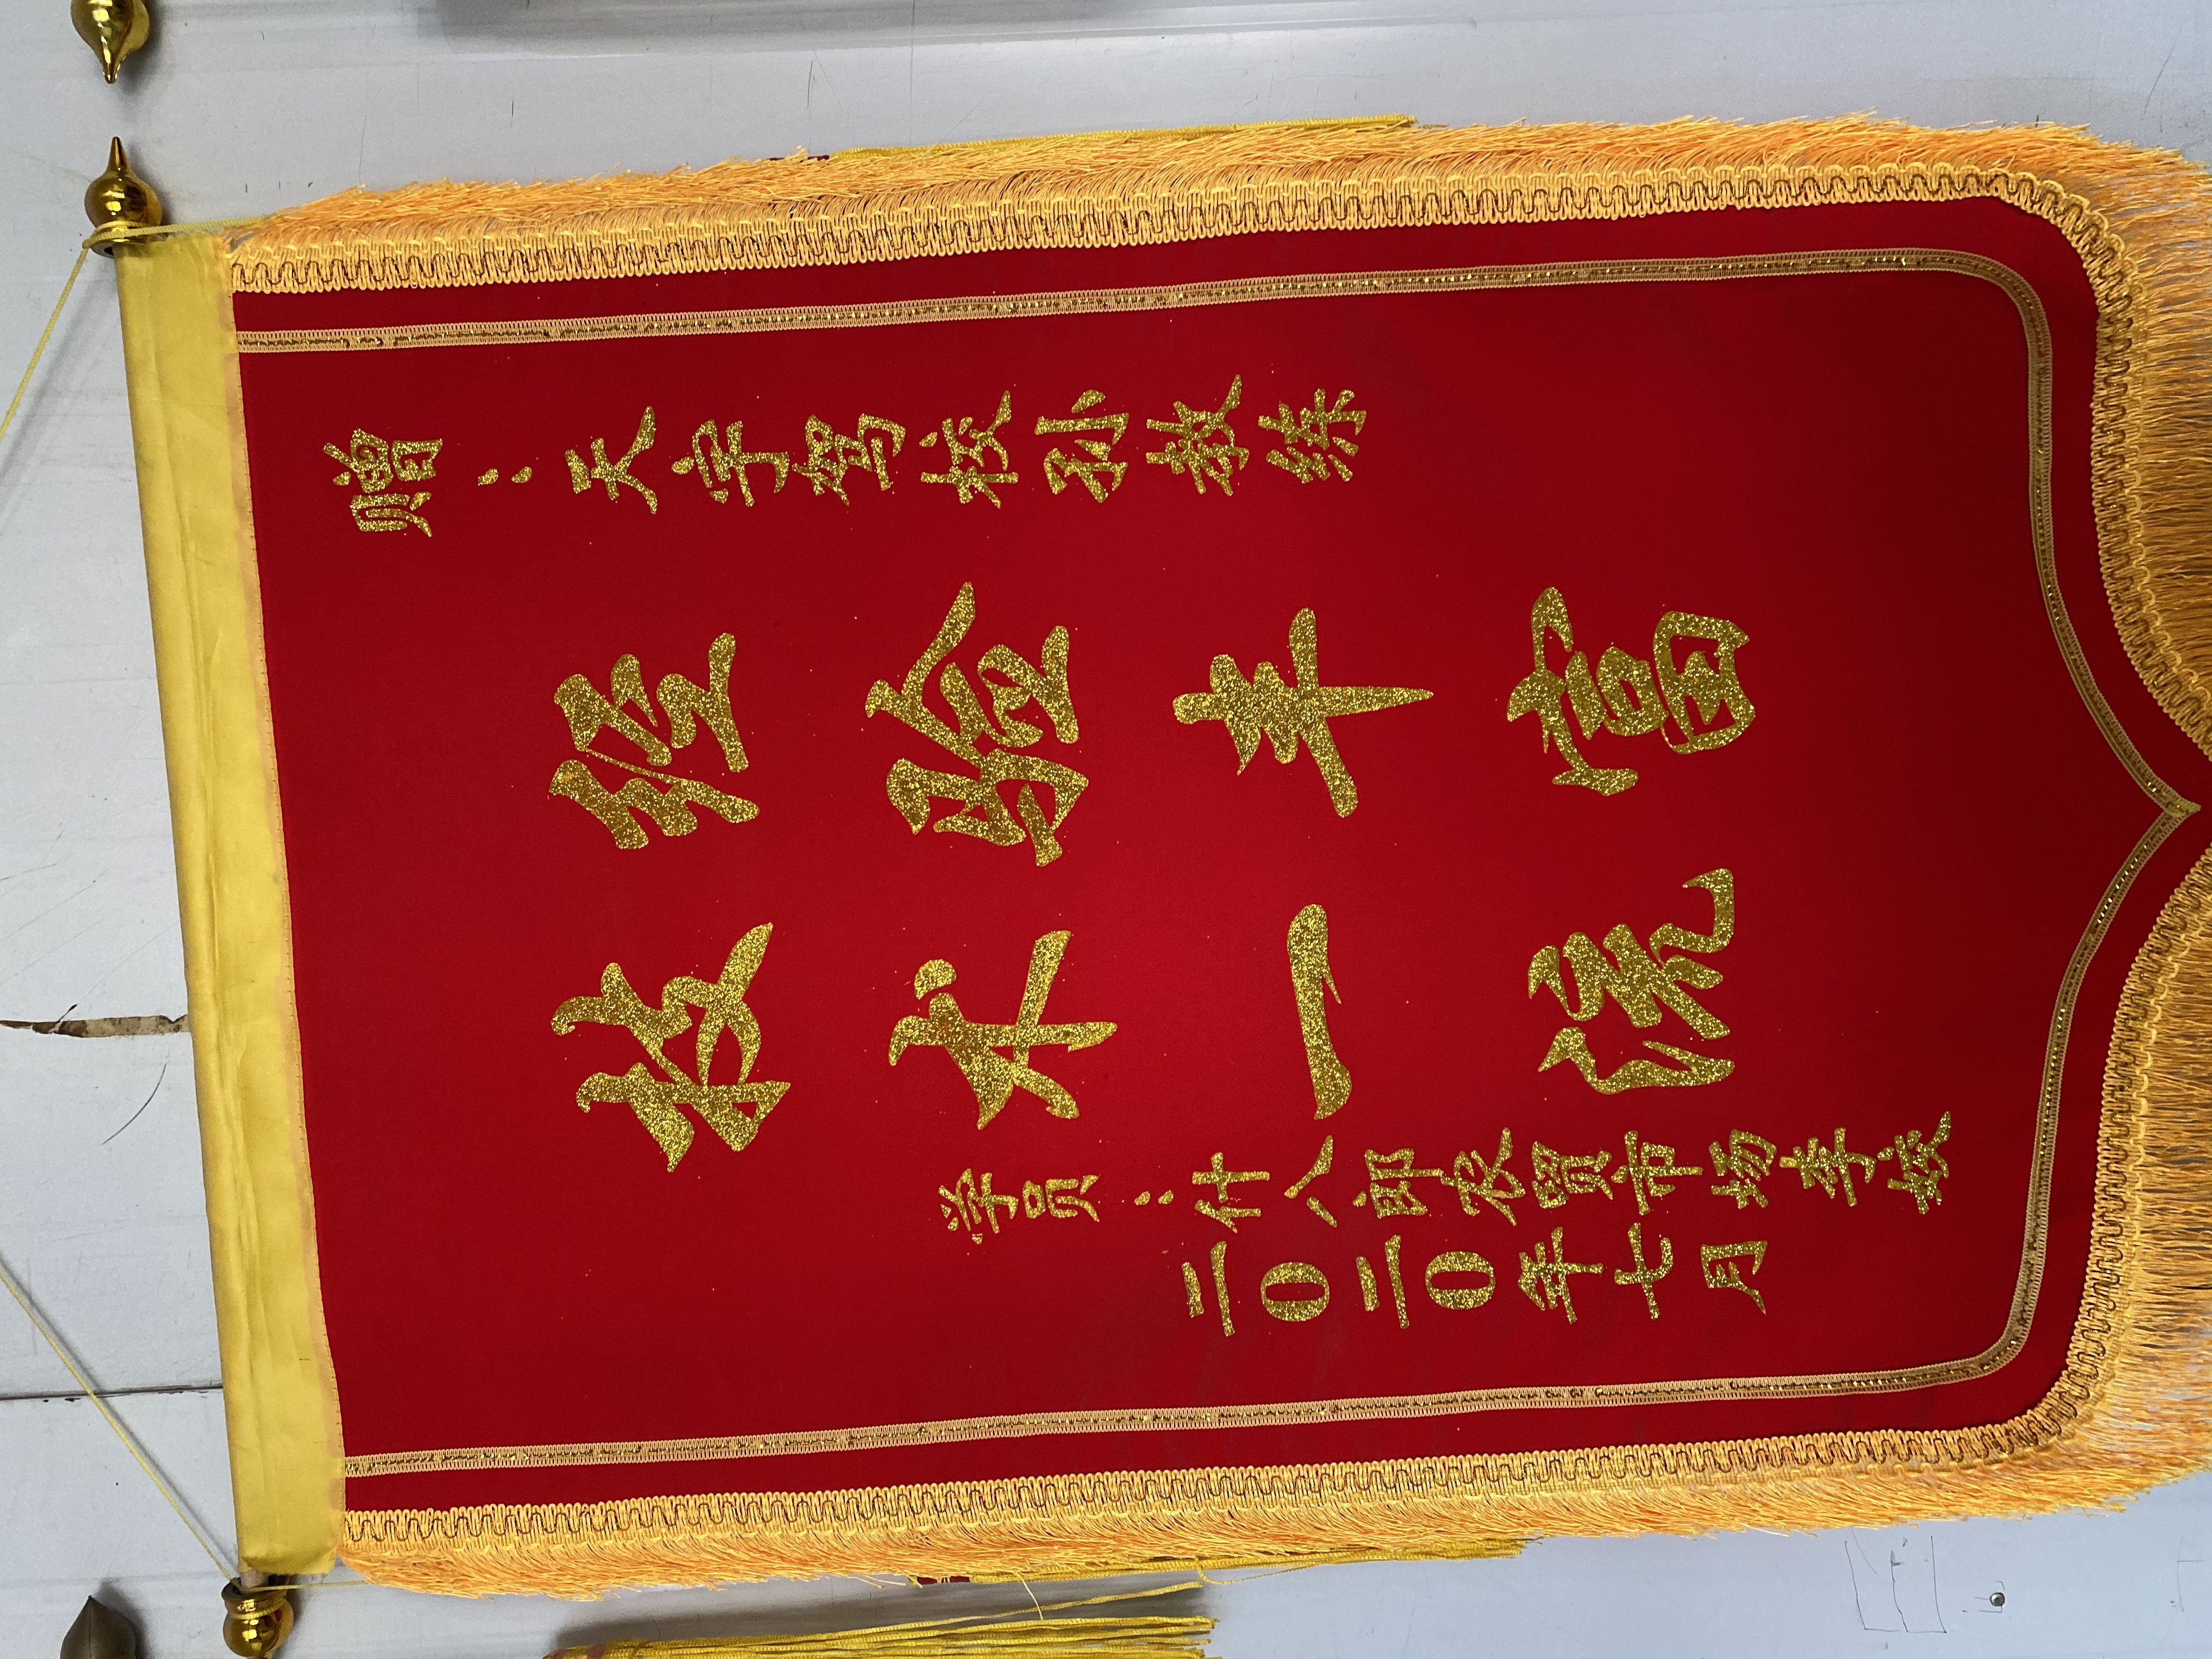 赠：天宇驾校孙教练
经验丰富
技术一流
学员：什八郎农贸市场李
二0二0年七月